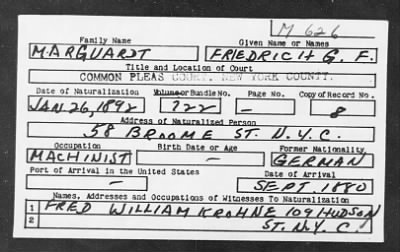 M 626
Family Name Given Name or Names
MARGUARDT FRIEDRICH G. F.
Title and Location of Court
COMMON PLEAS COURT, NEW YORK COUNTY.
Date of Naturalization Volume or Bundle No. Page No. Copy of Record No.
JAN 26, 1892 722 — 8
Address of Naturalized Person
58 BROOME ST. N.Y.C.
Occupation Birth Date or Age Former Nationality
MACHINIST — GERMAN
Port of Arrival in the United States Date of Arrival
— SEPT. 1880
Names, Addresses and Occupations of Witnesses To Naturalization
1 FRED WILLIAM KROHNE 109 HUDSON
2 ST. N.Y.C.